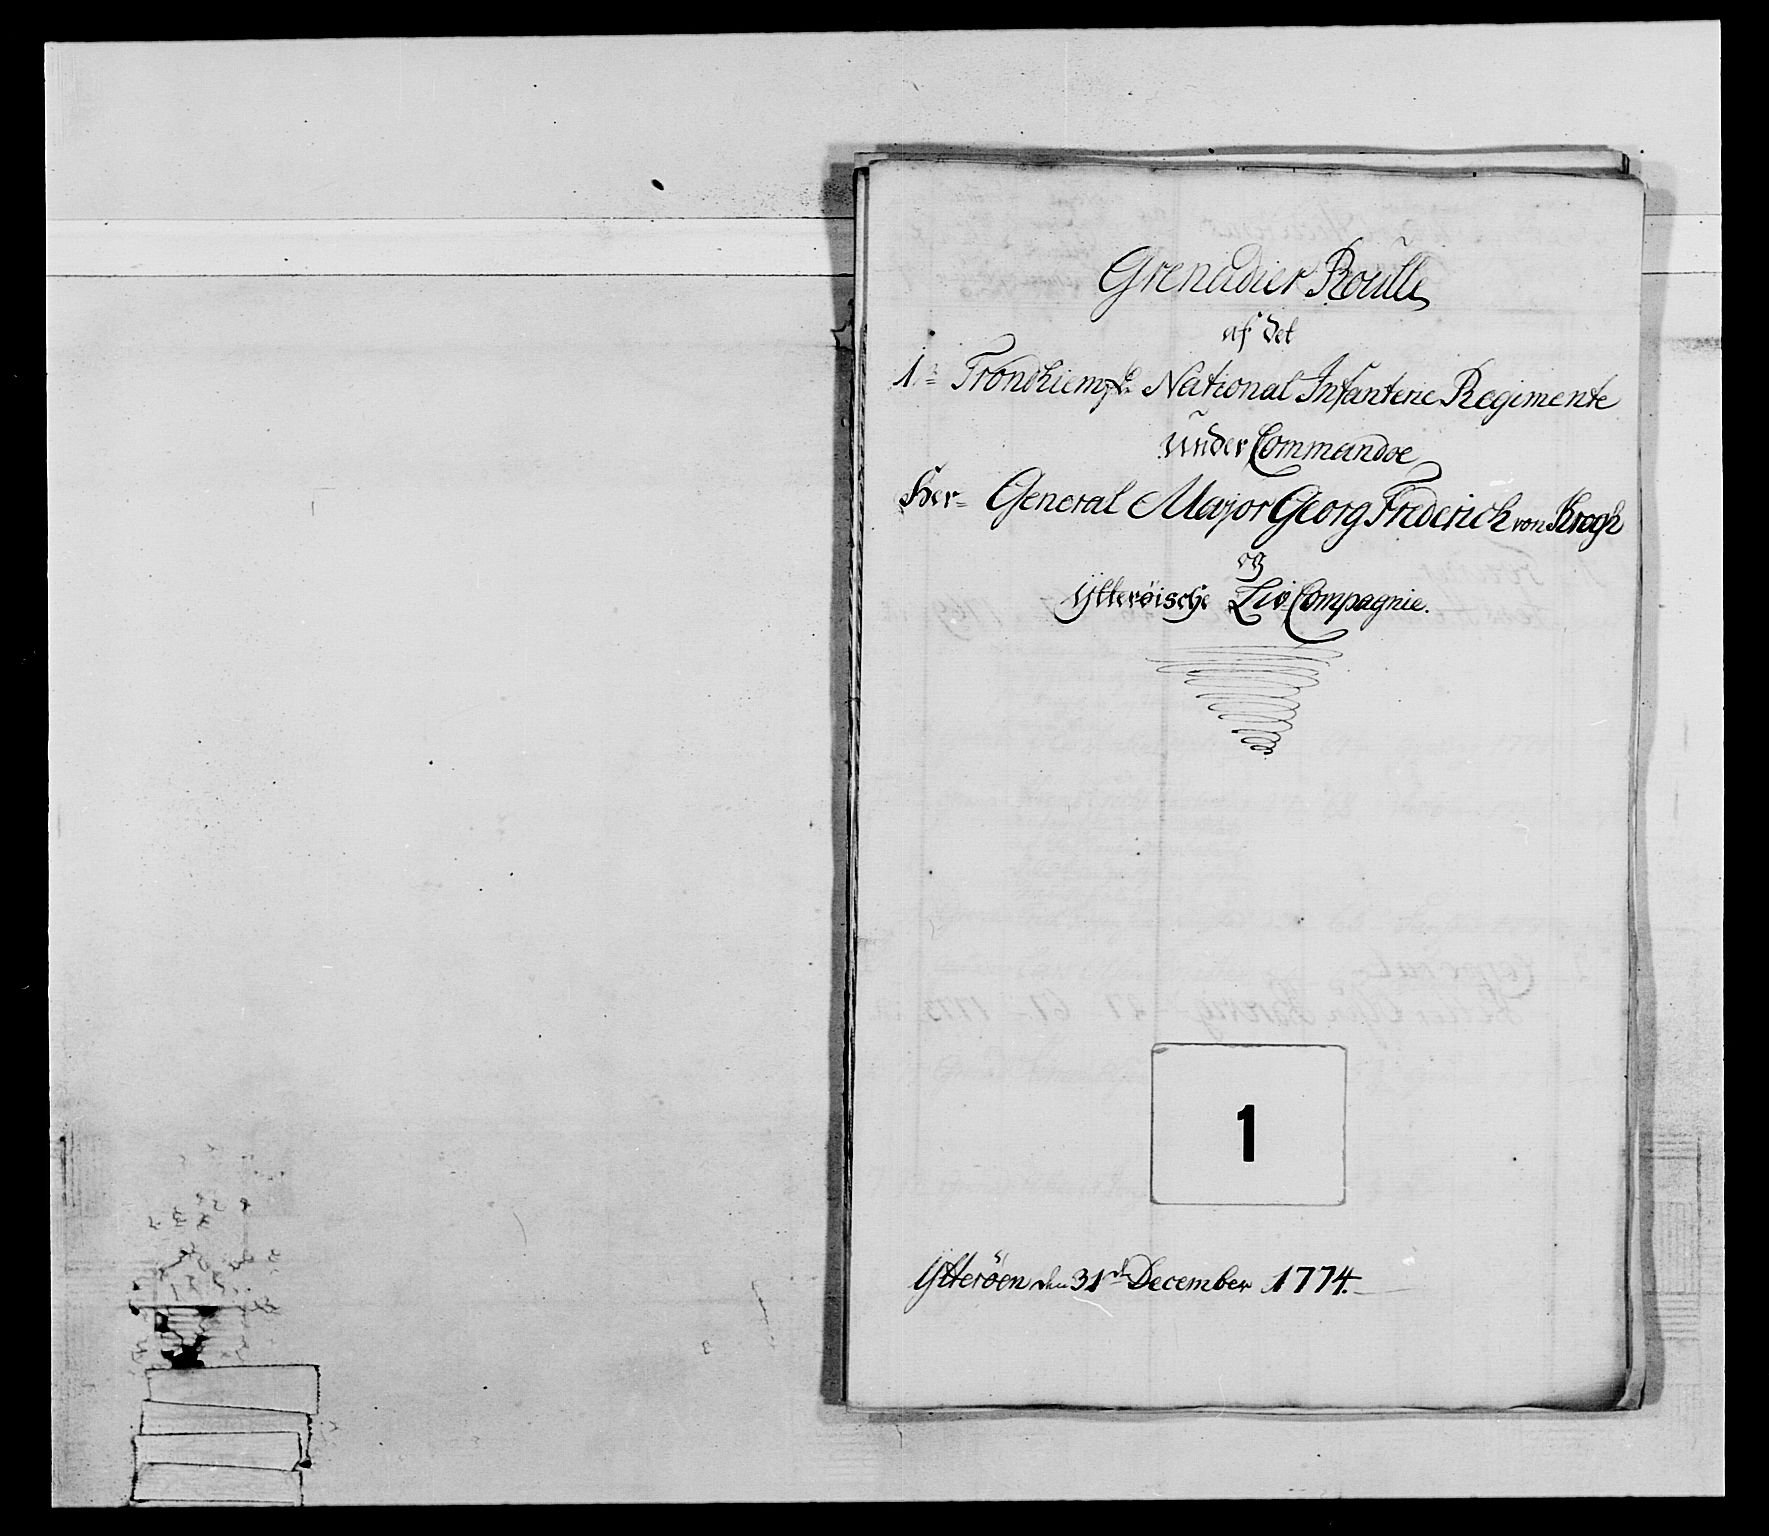 Grenadier Roulle
af det
1te Trondhiemske National Infanterie Regimente
under Commandoe
Her= General Major Georg Frederich von Krogh
og
Ytterøische Liv Compagnie.
1
Ytterøen den 31te December 1774.